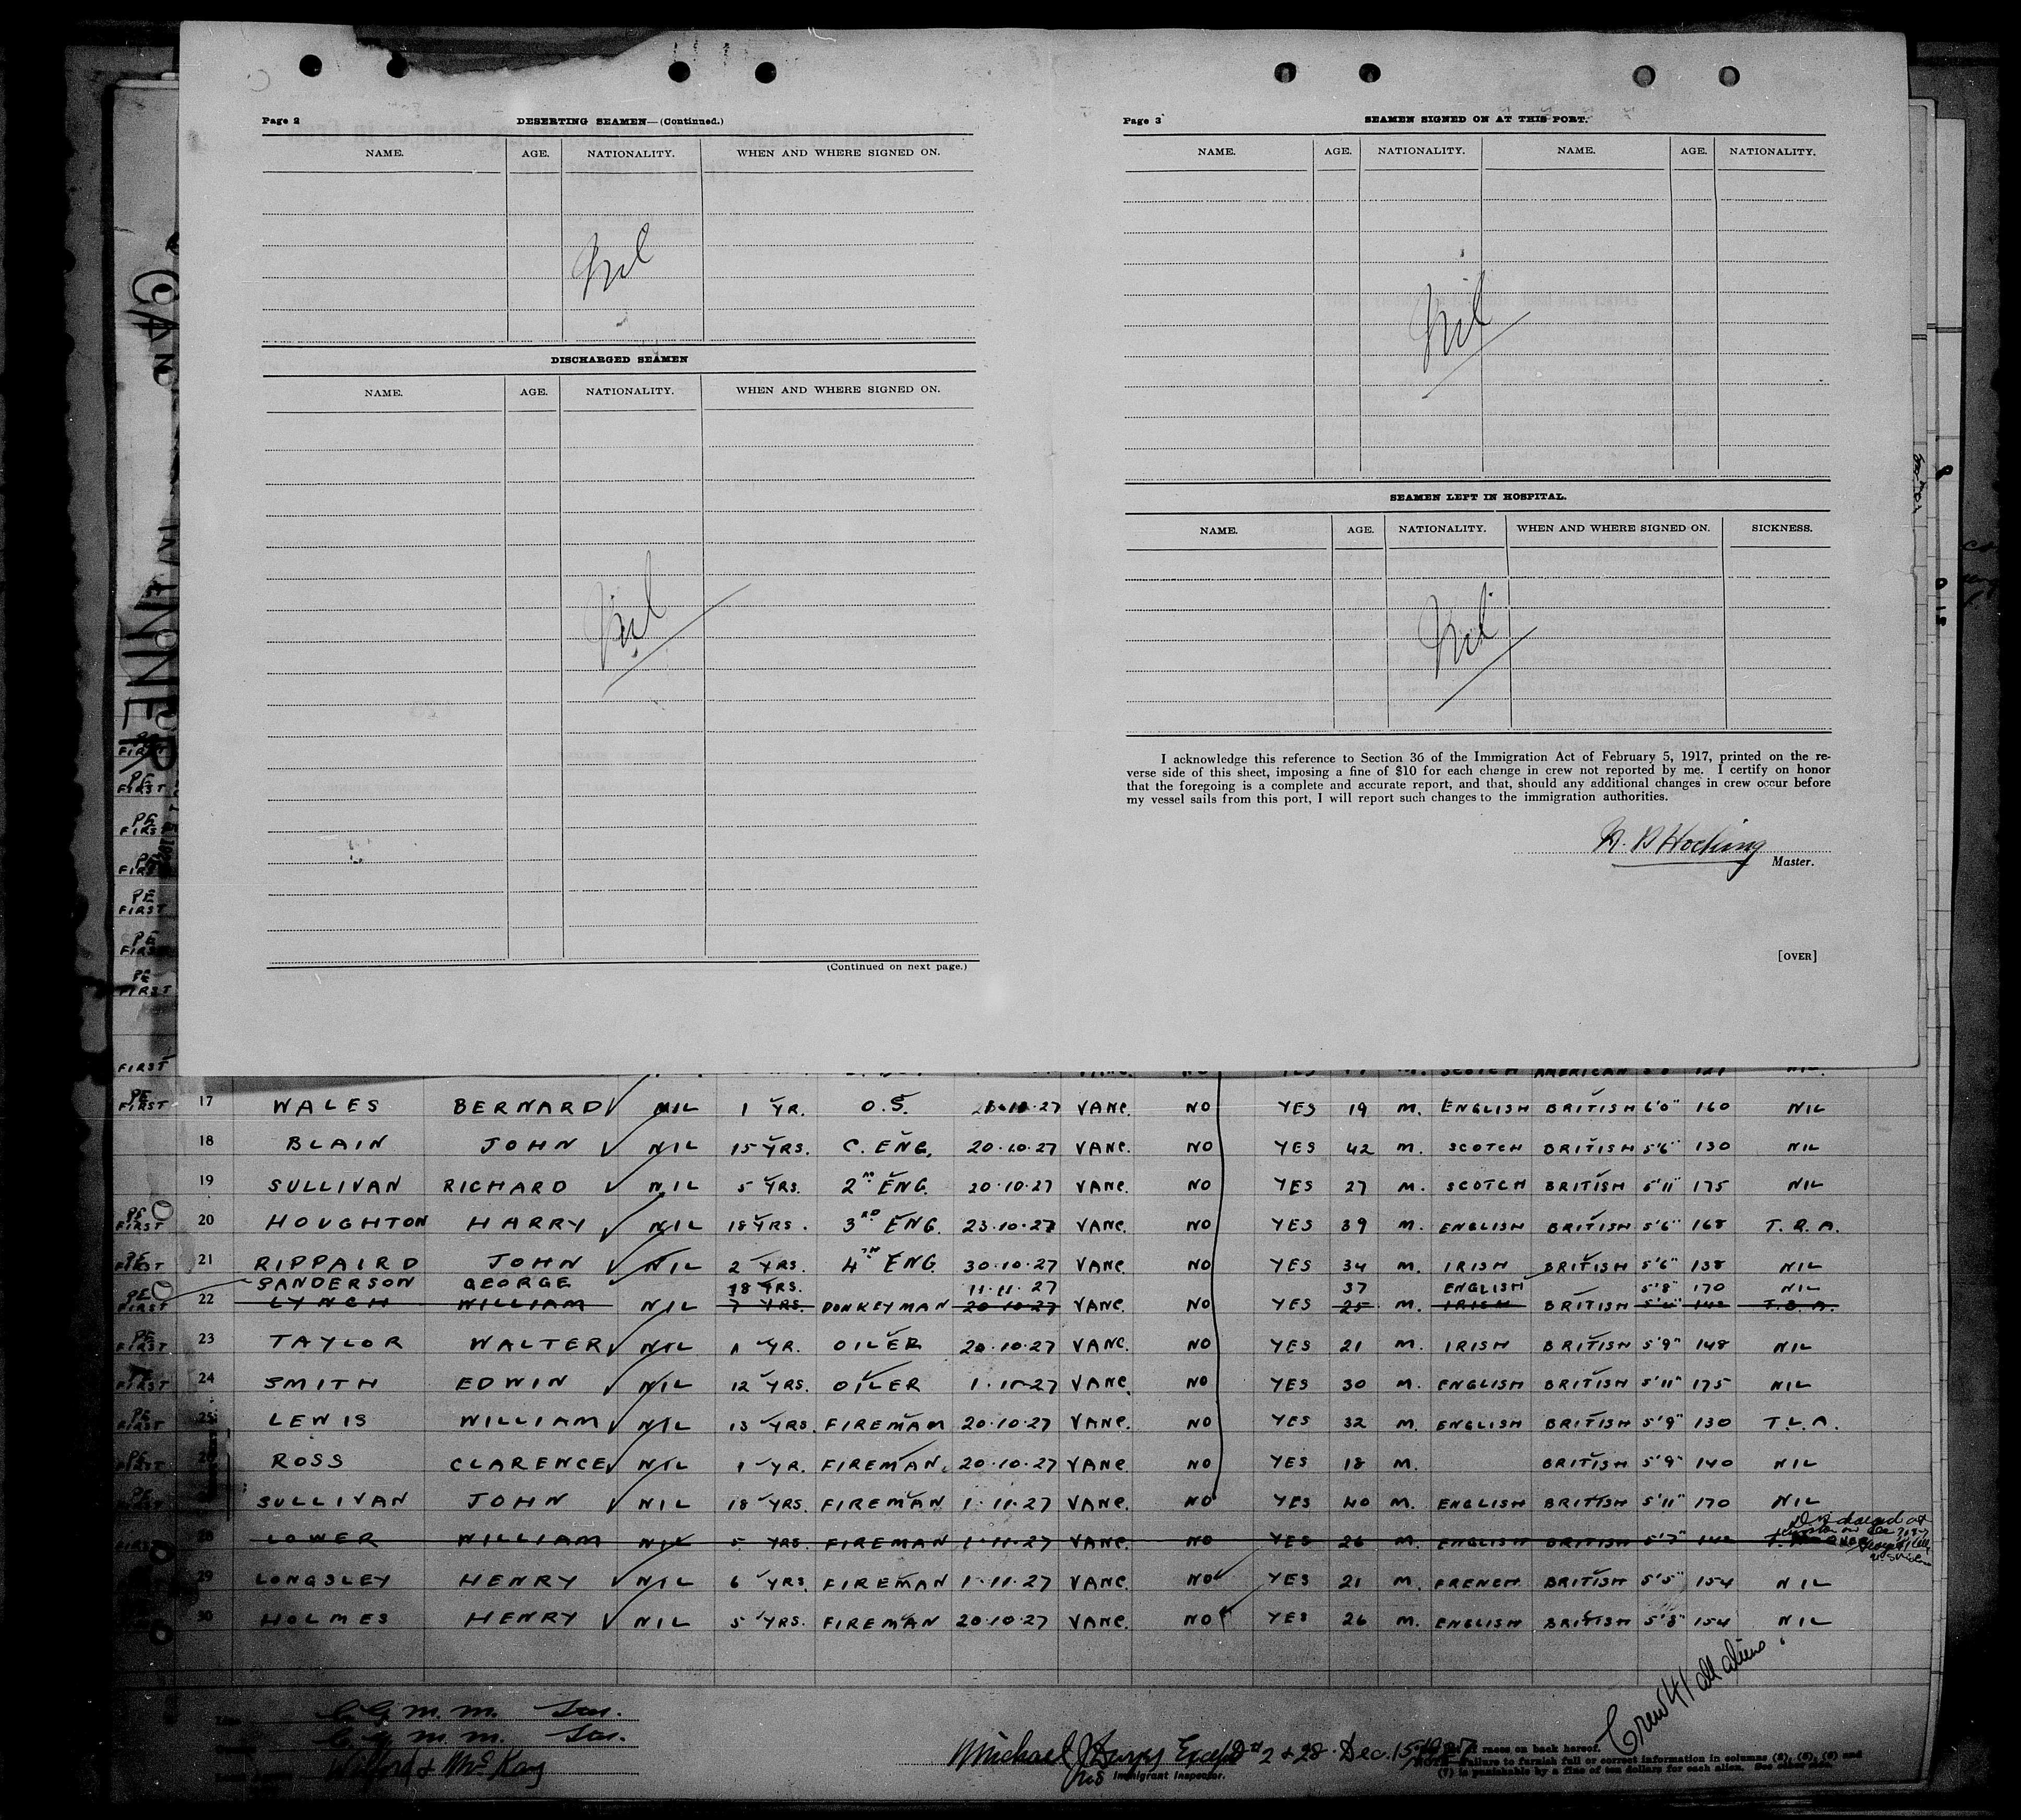 Page 2 DESERTING SEAMEN—(Continued.)
NAME. AGE. NATIONALITY. WHEN AND WHERE SIGNED ON.
Nil
DISCHARGED SEAMEN
NAME. AGE. NATIONALITY. WHEN AND WHERE SIGNED ON.
Nil
(Continued on next page.)
Page 3 SEAMEN SIGNED ON AT THIS PORT.
NAME. AGE. NATIONALITY. NAME. AGE. NATIONALITY.
Nil
SEAMEN LEFT IN HOSPITAL.
NAME. AGE. NATIONALITY. WHEN AND WHERE SIGNED ON. SICKNESS.
Nil
I acknowledge this reference to Section 36 of the Immigration Act of February 5, 1917, printed on the re-
verse side of this sheet, imposing a fine of $10 for each change in crew not reported by me. I certify on honor
that the foregoing is a complete and accurate report, and that, should any additional changes in crew occur before
my vessel sails from this port, I will report such changes to the immigration authorities.
Hocking
Master.
[OVER]
PE
FIRST 17 WALES BERNARD NIL 1 YR. O.S. 27 VANC. NO YES 19 M. ENGLISH BRITISH 6'0" 160 NIL
18 BLAIN JOHN NIL 15 YRS. C. ENG. 20·10·27 VANC. NO YES 42 M. SCOTCH BRITISH 5'6" 130 NIL
19 SULLIVAN RICHARD NIL 5 YRS. 2ND ENG. 20·10·27 VANC. NO YES 27 M. SCOTCH BRITISH 5'11" 175 NIL
PE
FIRST 20 HOUGHTON HARRY NIL 18 YRS. 3RD ENG. 23·10·27 VANC. NO YES 39 M. ENGLISH BRITISH 5'6" 168 T. R. A.
PE
FIRST 21 RIPPAIRD JOHN NIL 2 YRS. 4TH ENG. 30·10·27 VANC. NO YES 34 M. IRISH BRITISH 5'6" 138 NIL
SANDERSON GEORGE 18 YRS. 11·11·27 37 ENGLISH 5'8" 170 NIL
PE
FIRST 22 LYNCH WILLIAM NIL 7 YRS. DONKEYMAN 20·10·27 VANC. NO YES 25 M. IRISH BRITISH
PE
FIRST 23 TAYLOR WALTER NIL 1 YR. OILER 20·10·27 VANC. NO YES 21 M. IRISH BRITISH 5'9" 148 NIL
FIRST 24 SMITH EDWIN NIL 12 YRS. OILER 1·11·27 VANC. NO YES 30 M. ENGLISH BRITISH 5'11" 175 NIL
PE
FIRST 25 LEWIS WILLIAM NIL 13 YRS. FIREMAN 20·10·27 VANC. NO YES 32 M. ENGLISH BRITISH 5'9" 130 T. L. A.
PE
FIRST 26 ROSS CLARENCE NIL 1 YR. FIREMAN. 20·10·27 VANC. NO YES 18 M. BRITISH 5'9" 140 NIL
SULLIVAN JOHN NIL 18 YRS. FIREMAN 1·11·27 VANC. NO YES 40 M. ENGLISH BRITISH 5'11" 170 NIL
FIRST 28 LOWER WILLIAM NIL 5 YRS. FIREMAN 1·11·27 VANC. NO YES 26 M. ENGLISH BRITISH 5'7"
29 LONGSLEY HENRY NIL 6 YRS. FIREMAN 1·11·27 VANC. NO YES 21 M. FRENCH BRITISH 5'5" 154 NIL
30 HOLMES HENRY NIL 5 YRS. FIREMAN 20·10·27 VANC. NO YES 26 M. ENGLISH BRITISH 5'8" 154 NIL
Crew 41 all aliens.
C. G. M. M.
C. G. M. M.
& McKay
Michael J Except # 2 & 28. Dec. 15
Immigrant Inspector.
races on back hereof.
NOTE—Failure to furnish full or correct information in columns (2), (5), (6) and
(7) is punishable by a fine of ten dollars for each alien. See other side.